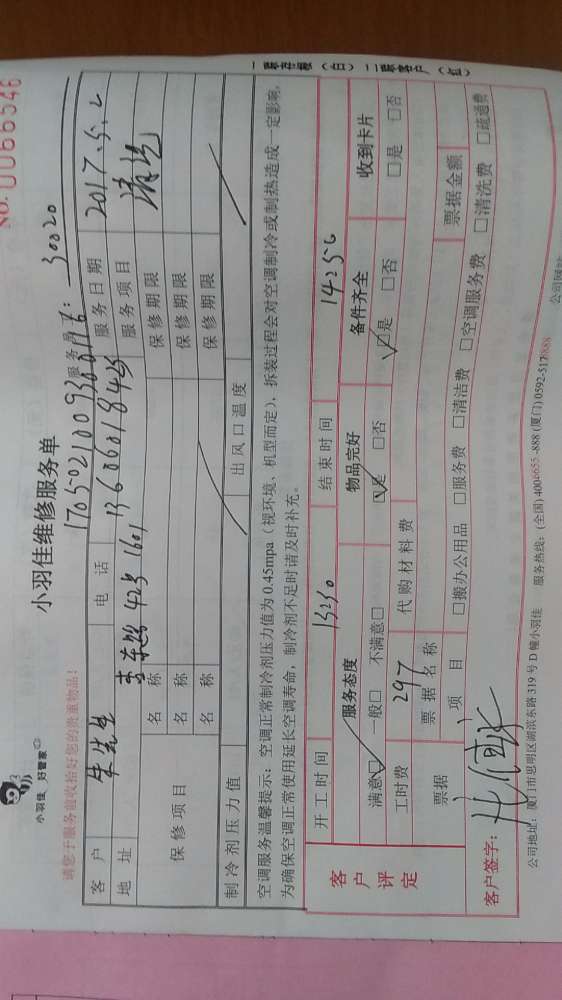 小羽佳 好管家
NO. 0066546
小羽佳维修服务单
请您于服务前收拾好您的贵重物品!
服务员: 30020
客户 朱先生 电话 13606018425 服务日期 2017.5.2
地址 东路42号1601 服务项目 清洗
保修项目 名称 保修期限
名称 保修期限
名称 保修期限
制冷剂压力值 出风口温度
空调服务温馨提示: 空调正常制冷剂压力值为0.45mpa(视环境、机型而定), 拆装过程会对空调制冷或制热造成一定影响,
为确保空调正常使用延长空调寿命, 制冷剂不足时请及时补充。
客户评定
开工时间 13:30 结束时间 14:25
服务态度 物品完好 备件齐全 收到卡片
满意□ 一般□ 不满意□ □是 □否 □是 □否 □是 □否
工时费 297 代购材料费
票据 票据名称 票据金额
项目 □搬办公用品 □服务费 □清洁费 □空调服务费 □清洗费 □疏通费
客户签字:
公司地址: 厦门市思明区湖滨东路319号D幢小羽佳 服务热线: (全国) 4006655-888 (厦门) 0592-5171888 公司网站
一联存根(白) 二联客户(红)